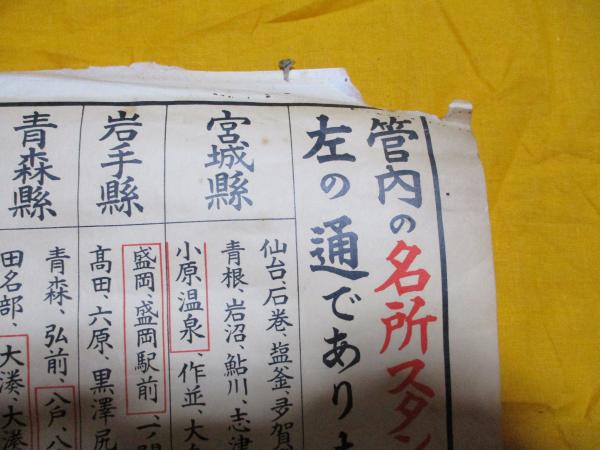 管内の名所スタン
左の通であり
宮城縣
仙台、石巻、塩釜、多賀
青根、岩沼、鮎川、志津
小原温泉、作並、大
岩手縣
盛岡、盛岡駅前、一ノ関
高田、六原、黒澤尻
青森縣
青森、弘前、八戸、八
田名部、大湊、大湊